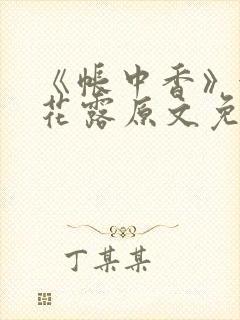 《帐中香》
花露原文免
丁某某